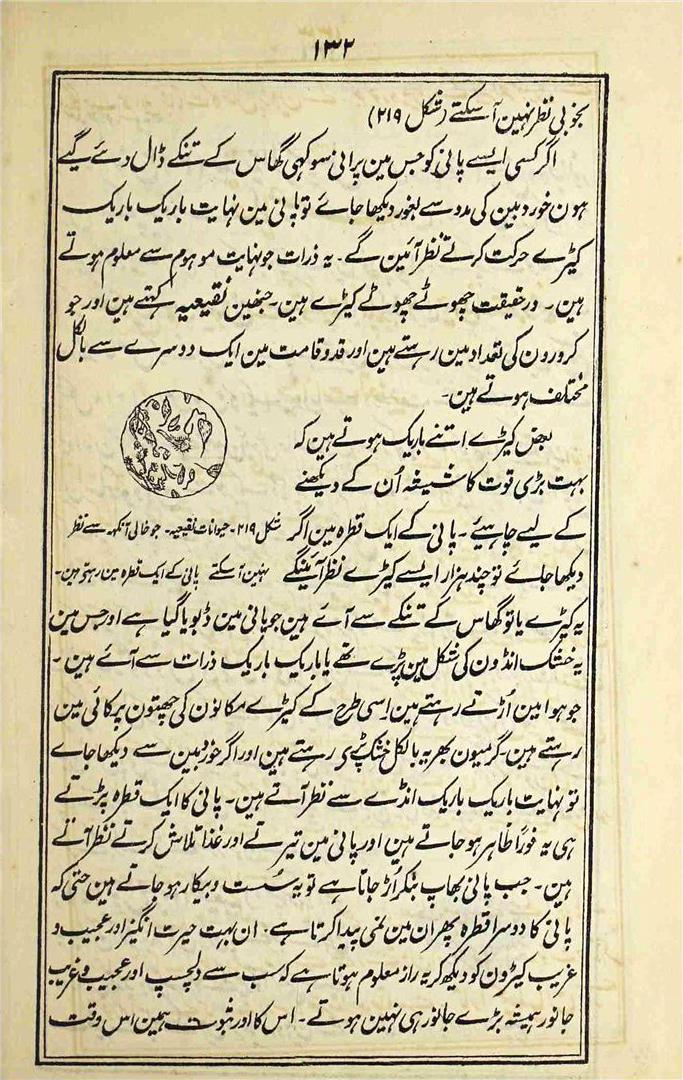 ۱۳۲
بخوبی نظر نہین آ سکتے (شکل ۲۱۹)
اگر کسی ایسے پانی کو جس مین پرانی سوکھی گھاس کے تنکے ڈال دئے گیے
ہون خوردبین کی مدد سے بغور دیکھا جاے تو پانی مین نہایت باریک باریک
کیڑے حرکت کرتے نظر آئین گے۔ یہ ذرات جو نہایت موہوم سے معلوم ہوتے
ہین۔ درحقیقت چھوٹے چھوٹے کیڑے ہین۔ جنھین نقیعیہ کہتے ہین اور جو
کرورون کی تعداد مین رہتے ہین اور قد و قامت مین ایک دوسرے سے بالکل
مختلف ہوتے ہین۔
بعض کیڑے اتنے باریک ہوتے ہین کہ
بہت بڑی قوت کا شیشہ اُن کے دیکھنے
کے لیے چاہیئے۔ پانی کے ایک قطرہ مین اگر
شکل ۲۱۹۔ حیوانات نقیعیہ۔ جو خالی آنکھہ سے نظر
دیکھا جائے تو چند ہزار ایسے کیڑے نظر آئینگے
نہین آ سکتے پانی کے ایک قطرہ مین رہتے ہین۔
یہ کیڑے یا تو گھاس کے تنکے سے آے ہین جو پانی مین ڈبویا گیا ہے اور جس مین
یہ خشک انڈون کی شکل مین پڑے تھے یا باریک باریک ذرات سے آئے ہین۔
جو ہوا مین اڑتے رہتے ہین اِسی طرح کے کیڑے مکانون کی چھتون پر کائی مین
رہتے ہین۔ گرمیون بھر یہ بالکل خشک پڑی رہتے ہین اور اگر خوردبین سے دیکھا جاے
تو نہایت باریک باریک انڈے سے نظر آتے ہین۔ پانی کا ایک قطرہ پڑتے
ہی یہ فوراً ظاہر ہو جاتے ہین اور پانی مین تیرتے اور غذا تلاش کرتے نظر آتے
ہین۔ جب پانی بھاپ بنکر اُڑ جاتا ہے تو یہ سُست و بیکار ہو جاتے ہین حتی کہ
پانی کا دوسرا قطرہ پھر ان مین نمی پیدا کرتا ہے۔ ان بہت حیرت انگیز اور عجیب و
غریب کیڑون کو دیکھ کر یہ راز معلوم ہوتا ہے کہ سب سے دلچسپ اور عجیب و غریب
جانور ہمیشہ بڑے جانور ہی نہین ہوتے۔ اس کا اور ثبوت ہمین اس وقت